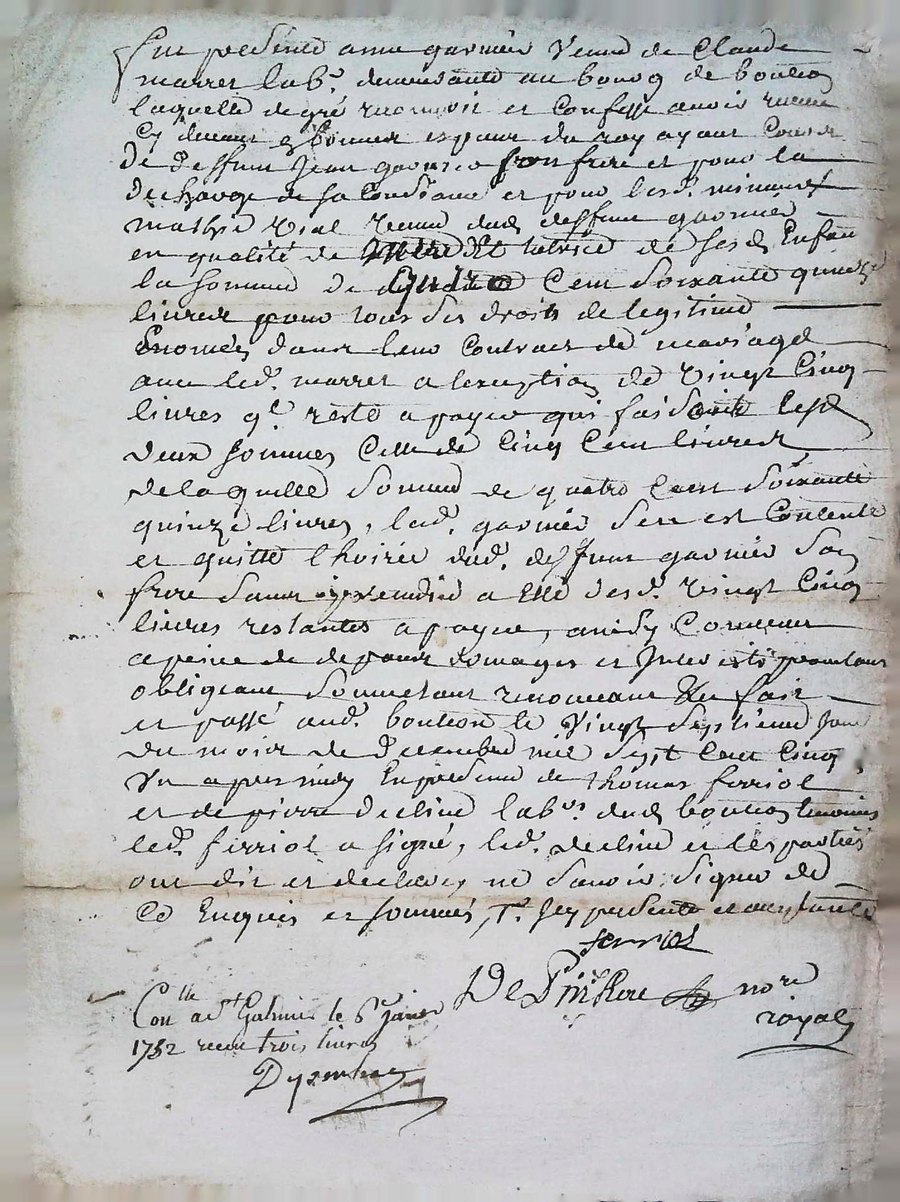 Fut presente anne garnier Veuve de Claude
marret lab.r demeurante au bourg de bouteon
laquelle de gré reconnoit et Confesse avoir receu
Cy devant en bonnes espèces du roy ayant Cours
de deffunt Jean garnier son frere et pour la
decharge de sa Conscience et pour lesd. mineurs
mathie vial veuve dud. deffunt garnier
en qualité de mere Et tutrice de sesd. Enfans
la somme de quatre Cent Soixante quinze
livres pour tous ses droits de legitime
Enoncés dans leur Contract de mariage
avec led. marret a lexception de vingt Cinq
livres q.l reste a payer qui faisoit lesd.
deux sommes Celle de Cinq Cent livres
de laquelle Somme de quatre Cent Soixante
quinze livres, lad. garnier Sen est Contente
et quitte lhoirie dud. deffunt garnier Son
frere Sans prejudice a Elle desd. vingt Cinq
livres restantes a payer, ainsy Convenu
a peine de depens domages et Interests
obligeant Soumetant renonceant fait
et passé aud. bouteon le vingt Septieme jour
du mois de decembre mil Sept Cent Cinq.
Un apres midy En presence de thomas ferriol
et de pierre decline lab.rs dud. bouteon temoins
led. ferriol a signé, led. decline et les parties
ont dit et declaré ne Savoir Signer de
Ce Enquis et sommés,
ferriol
nore
royal
Con.lle a St Galmier le 6.e Janvier
1752 receu trois livres